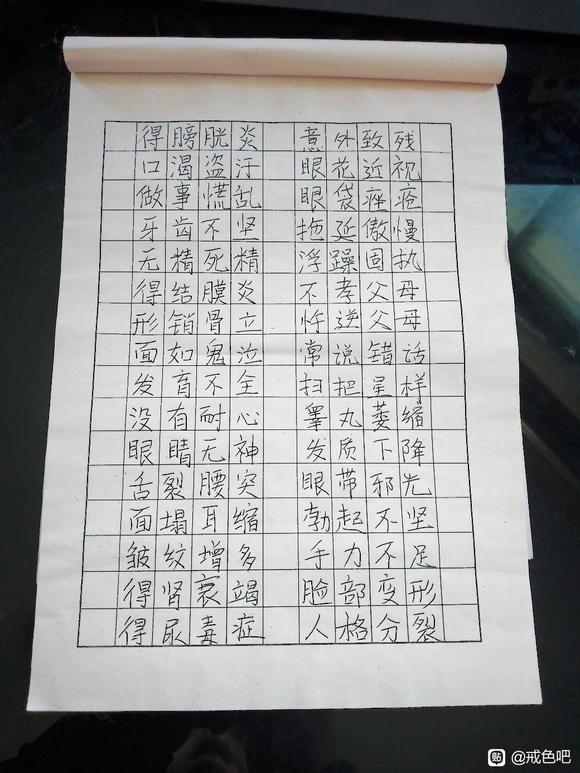 得膀胱炎 意外致残
口渴盗汗 眼花近视
做事慌乱 眼袋痤疮
牙齿不坚 拖延傲慢
无精死精 浮躁固执
得结膜炎 不孝父母
形销骨立 忤逆父母
面如鬼泣 常说错话
发育不全 扫把星样
没有耐心 睾丸萎缩
眼睛无神 发质下降
舌裂腰突 眼带邪光
面塌耳缩 勃起不坚
皱纹增多 手力不足
得肾衰竭 脸部变形
得尿毒症 人格分裂
贴 @戒色吧